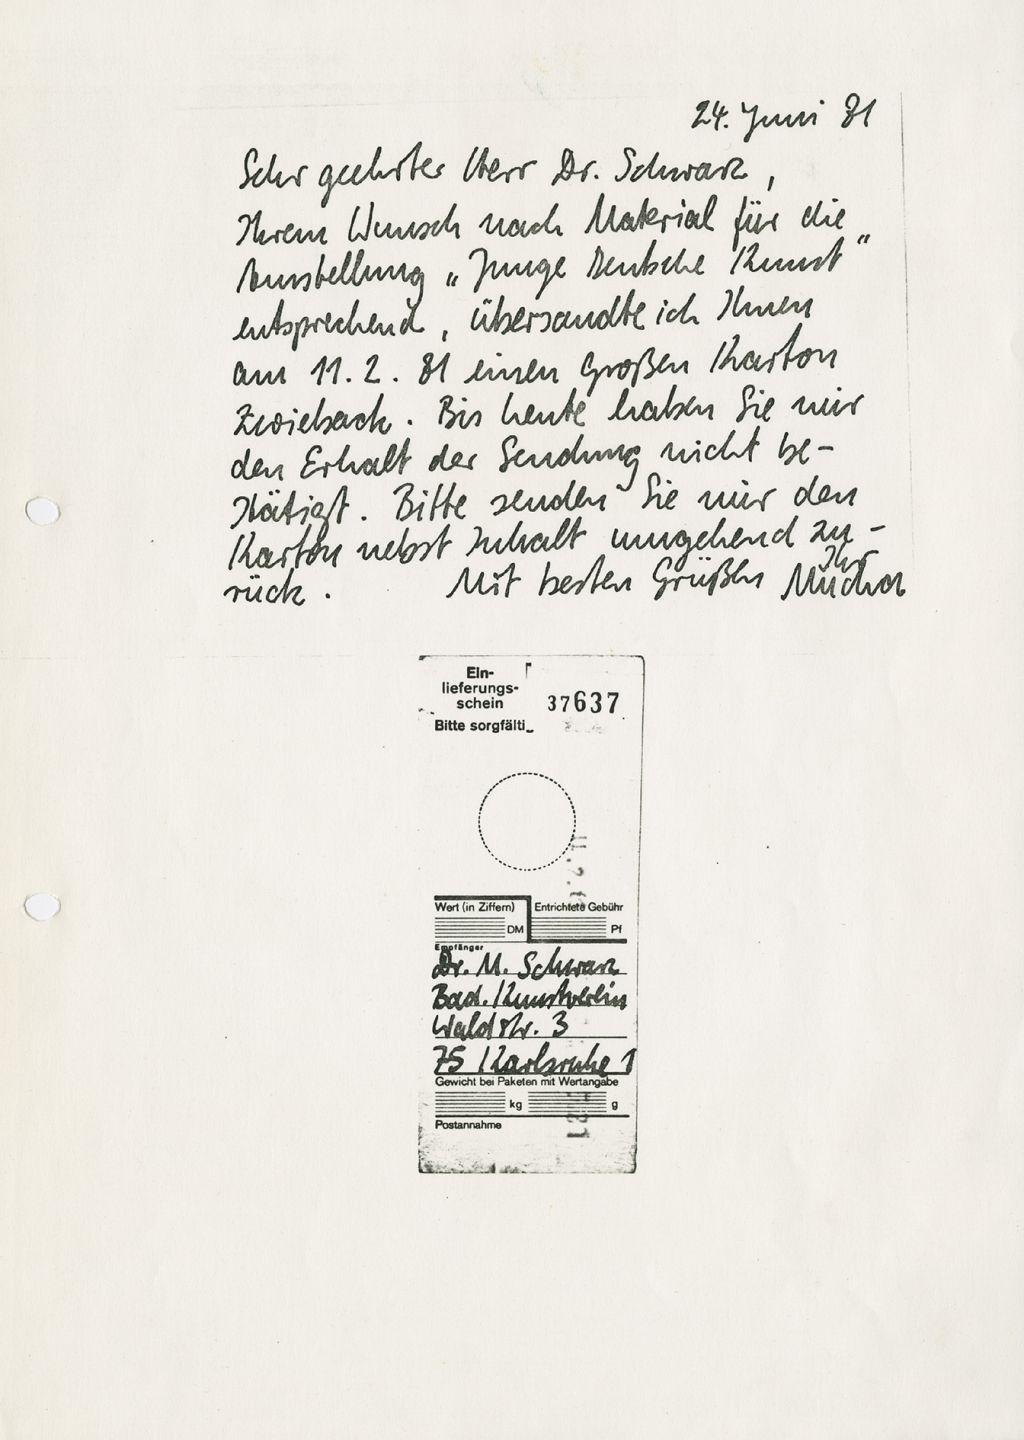 24. Juni 81
Sehr geehrter Herr Dr. Schwarz,
Ihrem Wunsch nach Material für die
Ausstellung „Junge Deutsche Kunst"
entsprechend, übersandte ich Ihnen
am 11.2.81 einen großen Karton
Zwieback. Bis heute haben Sie mir
den Erhalt der Sendung nicht be-
stätigt. Bitte senden Sie mir den
Karton nebst Inhalt umgehend zu-
rück. Mit besten Grüßen Ihr Mucha
Ein-
lieferungs-
schein 37637
Bitte sorgfälti
Wert (in Ziffern) Entrichtete Gebühr
DM Pf
Empfänger
Dr. M. Schwarz
Bad. Kunstverein
Waldstr. 3
75 Karlsruhe 1
Gewicht bei Paketen mit Wertangabe
kg g
Postannahme